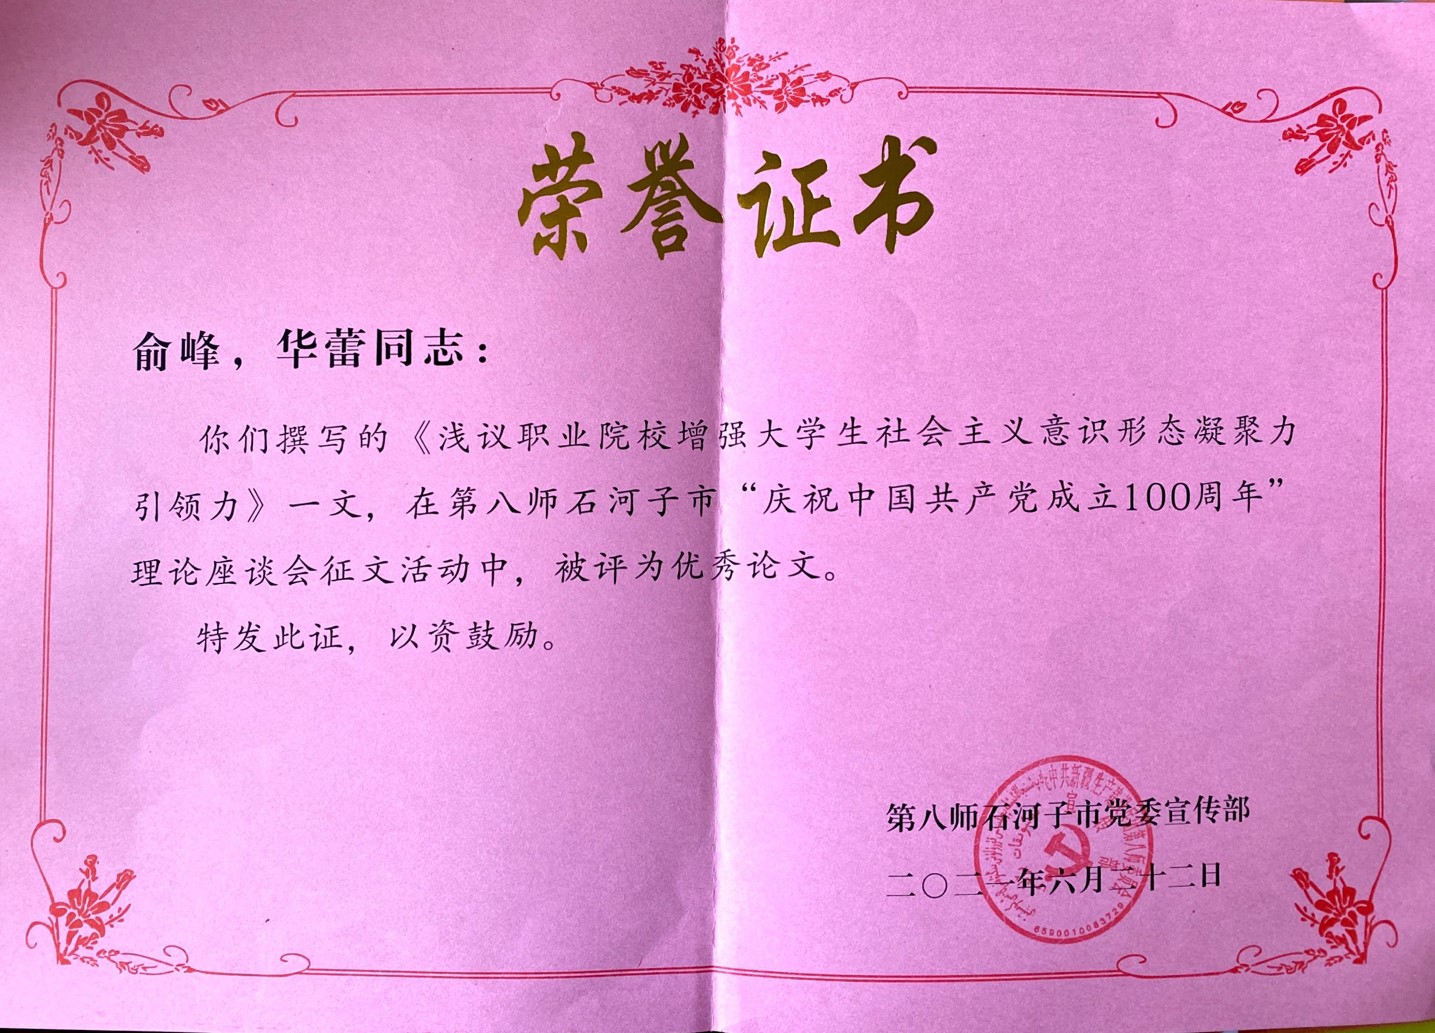 荣誉证书
俞峰，华蕾同志：
你们撰写的《浅议职业院校增强大学生社会主义意识形态凝聚力
引领力》一文，在第八师石河子市“庆祝中国共产党成立100周年”
理论座谈会征文活动中，被评为优秀论文。
特发此证，以资鼓励。
第八师石河子市党委宣传部
二〇二一年六月二十二日
6590010083729